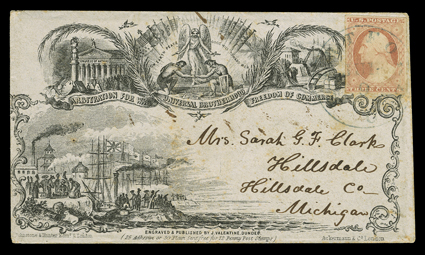 U.S. POSTAGE
THREE CENTS
ARBITRATION FOR WAR UNIVERSAL BROTHERHOOD FREEDOM OF COMMERCE
Mrs. Sarah G. F. Clark
Hillsdale
Hillsdale Co
Michigan
ENGRAVED & PUBLISHED BY J. VALENTINE, DUNDEE.